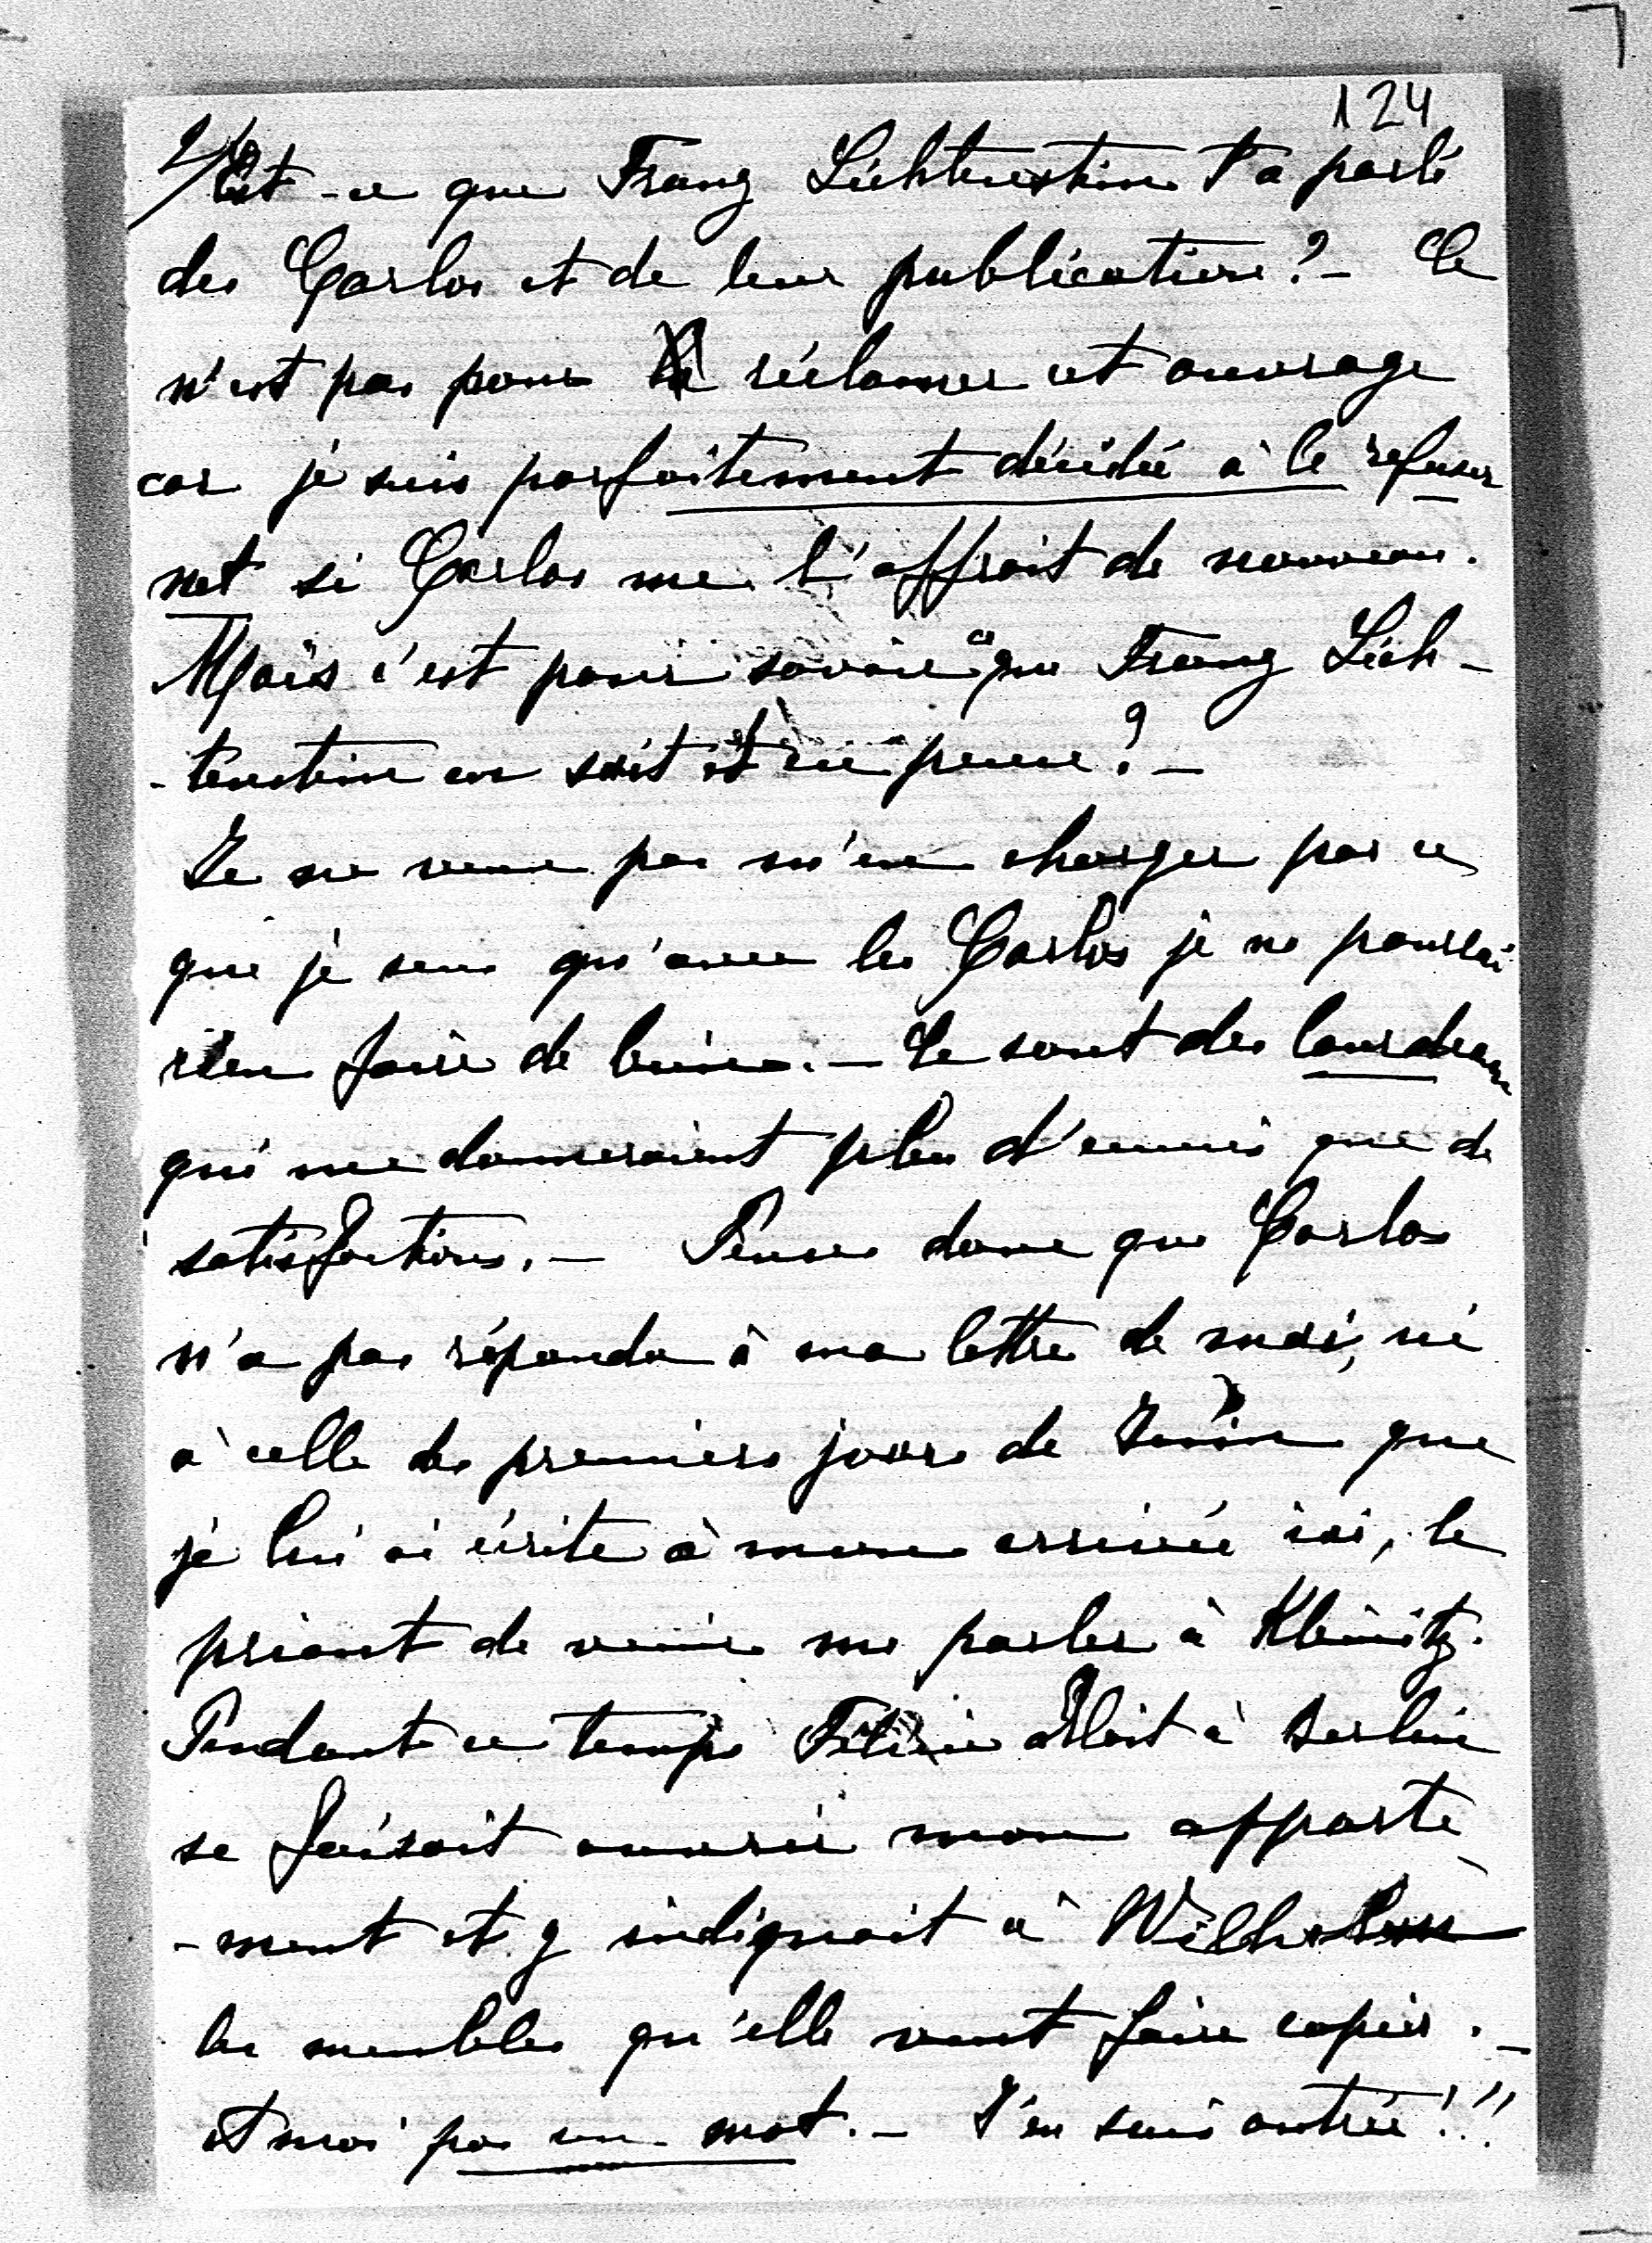 124
2/ Est-ce que Franz Lichtenstein t'a parlé
des Carlos et de leur publication? - Ce
n'est pas pour réclamer cet ouvrage
car je suis parfaitement décidée à le refuser
net si Carlos me l'offrait de nouveau.
Mais c'est pour savoir ce que Franz Lich-
-tenstein en sait et en pense? -
Je ne veux pas m'en charger par ce
que je sens qu'avec les Carlos je ne pourrai
rien faire de bien. - Ce sont des lourdeaux
qui me donneraient plus d'ennuis que de
satisfactions. - Pense donc que Carlos
n'a pas répondu à ma lettre de mai, ni
à celle des premiers jours de Juin que
je lui ai écrite à mon arrivée ici, le
priant de venir me parler à Kleinitz.
Pendant ce temps allait à Berlin
se faisait ouvrir mon apparte-
-ment et y indiquait à Wilhelm
les meubles qu'elle veut faire copier. -
et moi pas un mot. - J'en suis outrée!!!